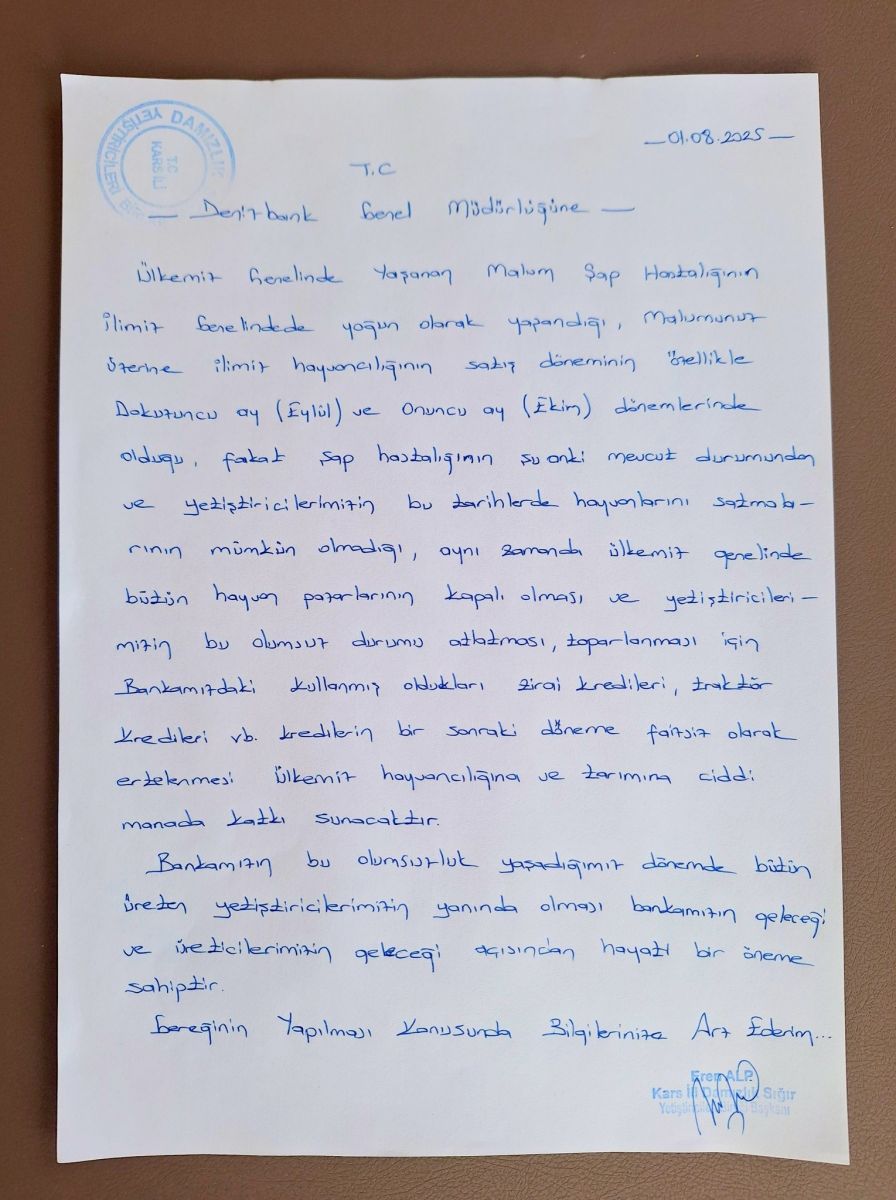 YETİŞTİRİCİLERİ DAMIZLIK
T.C
KARS İLİ
— 01.08.2025 —
T.C
— Denizbank Genel Müdürlüğüne —
Ülkemiz Genelinde Yaşanan Malum Şap Hastalığının
İlimiz Genelindede yoğun olarak yaşandığı, Malumunuz
üzerine ilimiz hayvancılığının satış döneminin özellikle
Dokuzuncu ay (Eylül) ve Onuncu ay (Ekim) dönemlerinde
olduğu, fakat şap hastalığının şu anki mevcut durumundan
ve yetiştiricilerimizin bu tarihlerde hayvanlarını satmala-
rının mümkün olmadığı, aynı zamanda ülkemiz genelinde
bütün hayvan pazarlarının kapalı olması ve yetiştiricileri-
mizin bu olumsuz durumu atlatması, toparlanması için
Bankamızdaki kullanmış oldukları zirai kredileri, traktör
kredileri vb. kredilerin bir sonraki döneme faizsiz olarak
ertelenmesi ülkemiz hayvancılığına ve tarımına ciddi
manada katkı sunacaktır.
Bankamızın bu olumsuzluk yaşadığımız dönemde bütün
üreten yetiştiricilerimizin yanında olması bankamızın geleceği
ve üreticilerimizin geleceği açısından hayati bir öneme
sahiptir.
Gereğinin Yapılması Konusunda Bilgilerinize Arz Ederim...
Eren ALP
Kars İli Damızlık Sığır
Yetiştiricileri Birliği Başkanı